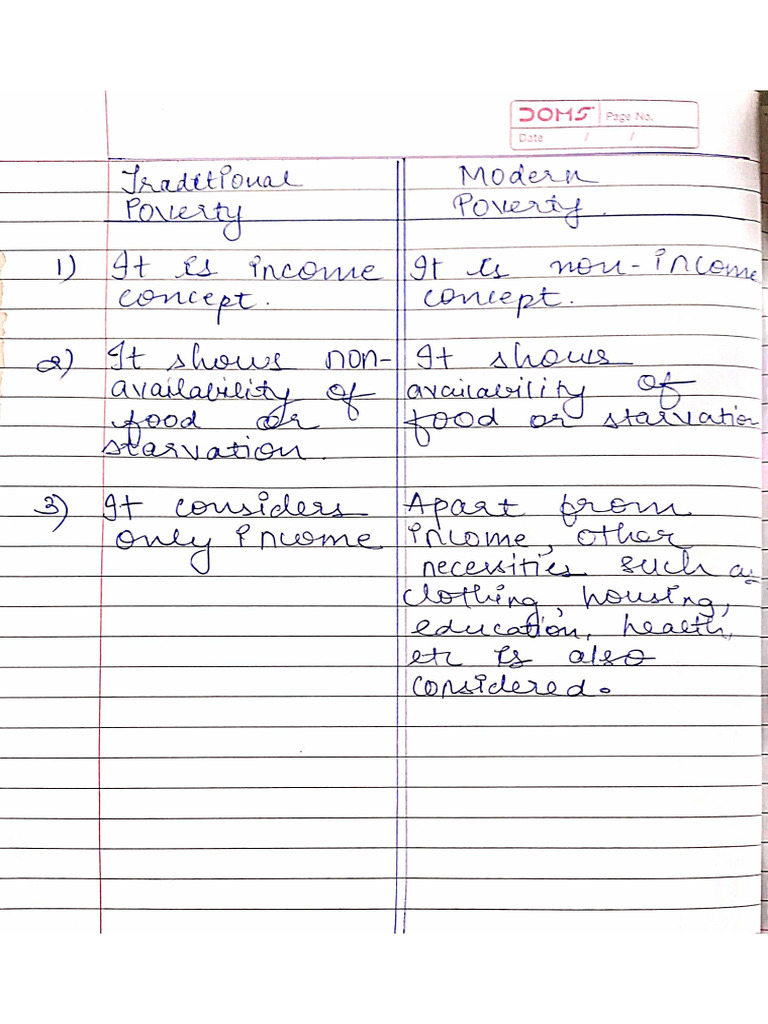 DOMS Page No.
Date / /
Traditional
Poverty
Modern
Poverty.
1) It is income
concept.
It is non-income
concept.
2) It shows non-
availability of
food or
starvation.
It shows
availability of
food or starvation
3) It considers
only income
Apart from
income, other
necessities such as
clothing, housing,
education, health,
etc is also
considered.